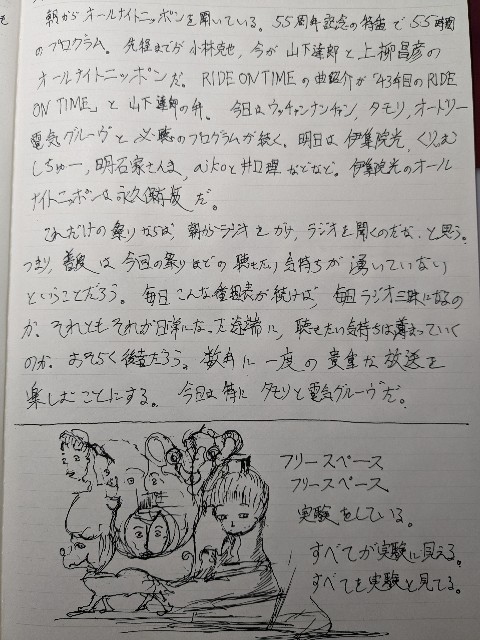 朝からオールナイトニッポンを聞いている。55周年記念の特番で55時間
のプログラム。先程までが小林克也、今が山下達郎と上柳昌彦の
オールナイトニッポンだ。RIDE ON TIMEの曲紹介が「43年目のRIDE
ON TIME」と山下達郎の弁。今日はウッチャンナンチャン、タモリ、オードリー
電気グルーヴと必聴のプログラムが続く。明日は伊集院光、くりぃむ
しちゅー、明石家さんま、aikoと井口理などなど。伊集院光のオール
ナイトニッポンは永久保存版だ。
これだけの祭りならば、朝からラジオをかけ、ラジオを聞くのだな、と思う。
つまり、普段は今回の祭りほどの聴きたい気持ちが湧いていない
ということだろう。毎日こんな番組表が続けば、毎日ラジオ三昧になるの
か、それともそれが日常になった途端に、聴きたい気持ちは薄まっていく
のか。おそらく後者だろう。数年に一度の貴重な放送を
楽しむことにする。今日は特にタモリと電気グルーヴだ。
フリースペース
フリースペース
実験をしている。
すべてが実験に見える。
すべてを実験と見てる。